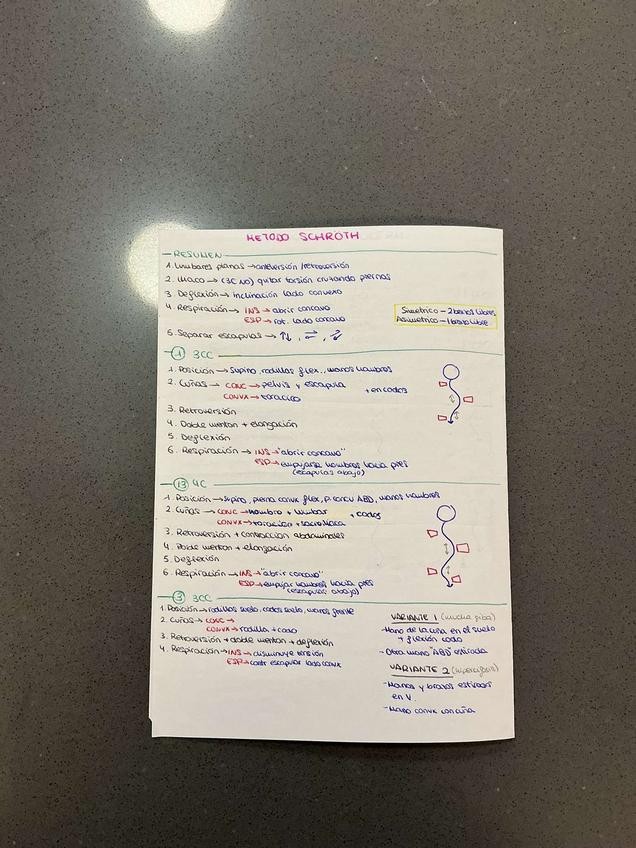 METODO SCHROTH
RESUMEN
1. Lumbares planas → anteversión/retroversión
2. Iliaco → (3C NO) quitar torsión cruzando piernas
3. Deflexión → inclinación lado convexo
4. Respiración → INS → abrir concavo
ESP → rot. lado concavo
Simetrico - 2 brazos libres
Asimetrico - 1 brazo libre
5. Separar escapulas → ↑↓, ⇄,
① 3CC
1. Posición → Supino, rodillas flex., manos hombros
2. Cuñas → CONC → pelvis + escapula
CONVX → toracica
+ en codos
3. Retroversión
4. Doble menton + elongación
5. Deflexión
6. Respiración → INS → "abrir concavo"
ESP → empujaria hombros hacia pies
(escapulas abajo)
⑬ 4C
1. Posición → Supino, pierna convx flex, p. concv ABD, manos hombros
2. Cuñas → CONC → hombro + lumbar
CONVX → toracica + sacroiliaca
+ codos
3. Retroversión + contracción abdominales
4. Doble menton + elongación
5. Deflexión
6. Respiración → INS → "abrir concavo"
ESP → empujar hombros hacia pies
(escapulas abajo)
③ 3CC
1. Posición → rodillas suelo, codos suelo, manos frente
2. Cuñas → CONC →
CONVX → rodilla + codo
3. Retroversión + doble menton + deflexión
4. Respiración → INS → disminuye tensión
ESP → contr escapular lado convx
VARIANTE 1 (mucha giba)
- Mano de la cuña en el suelo
+ flexión codo
- Otra mano ABD estirada
VARIANTE 2 (hipercifosis)
- Manos y brazos estirados
en V
- Mano convx con cuña